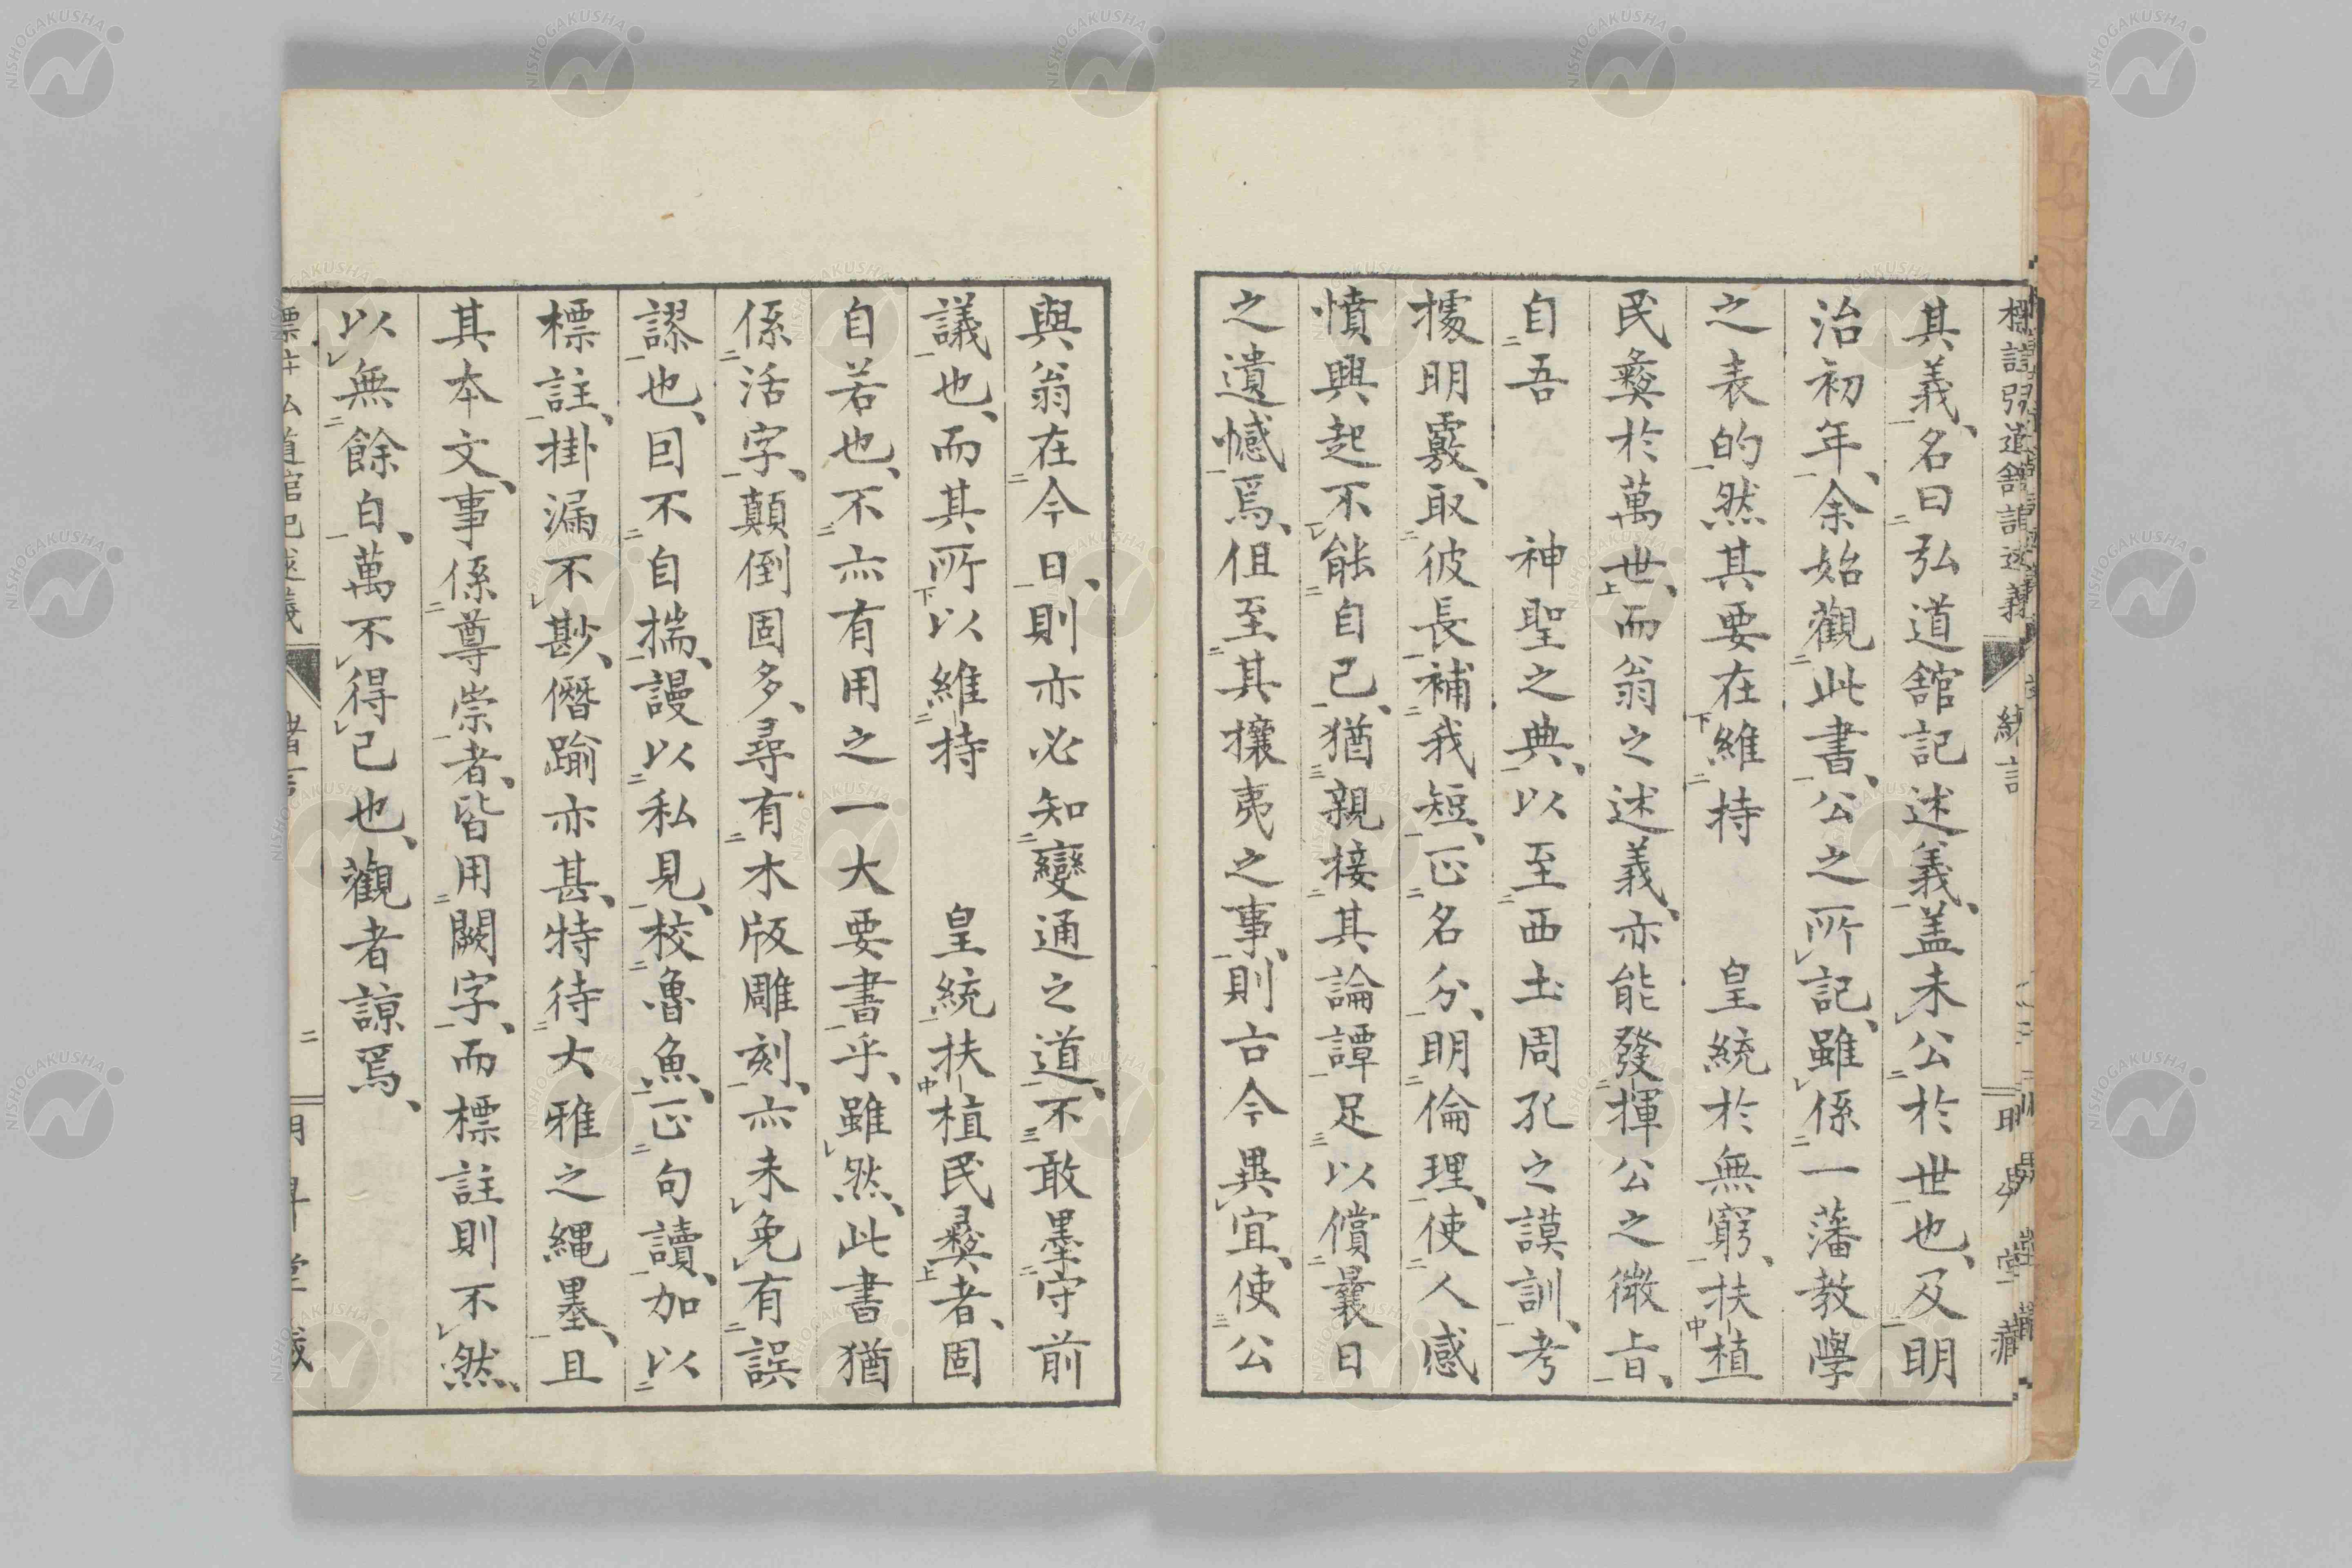 其義、名曰弘道館記述義、盖未公於世也、及明
治初年、余始觀此書、公之所記、雖係一藩教學
之表的、然其要在維持　皇統於無窮、扶植
民彜於萬世、而翁之述義、亦能發揮公之微旨、
自吾　神聖之典、以至西土周孔之謨訓、考
據明覈、取彼長、補我短、正名分、明倫理、使人感
憤興起不能自已、猶親接其論譚、足以償曩日
之遺憾焉、但至其攘夷之事、則古今異宜、使公
與翁在今日、則亦必知變通之道、不敢墨守前
議也、而其所以維持　皇統扶植民彜者、固
自若也、不亦有用之一大要書乎、雖然、此書猶
係活字、顛倒固多、尋有木版雕刻、亦未免有誤
謬也、因不自揣、謾以私見、校魯魚、正句讀、加以
標註、掛漏不尠、僭踰亦甚、特待大雅之繩墨、且
其本文、事係尊崇者、皆用闕字、而標註則不然、
以無餘白、萬不得已也、觀者諒焉、
NISHOGAKUSHA